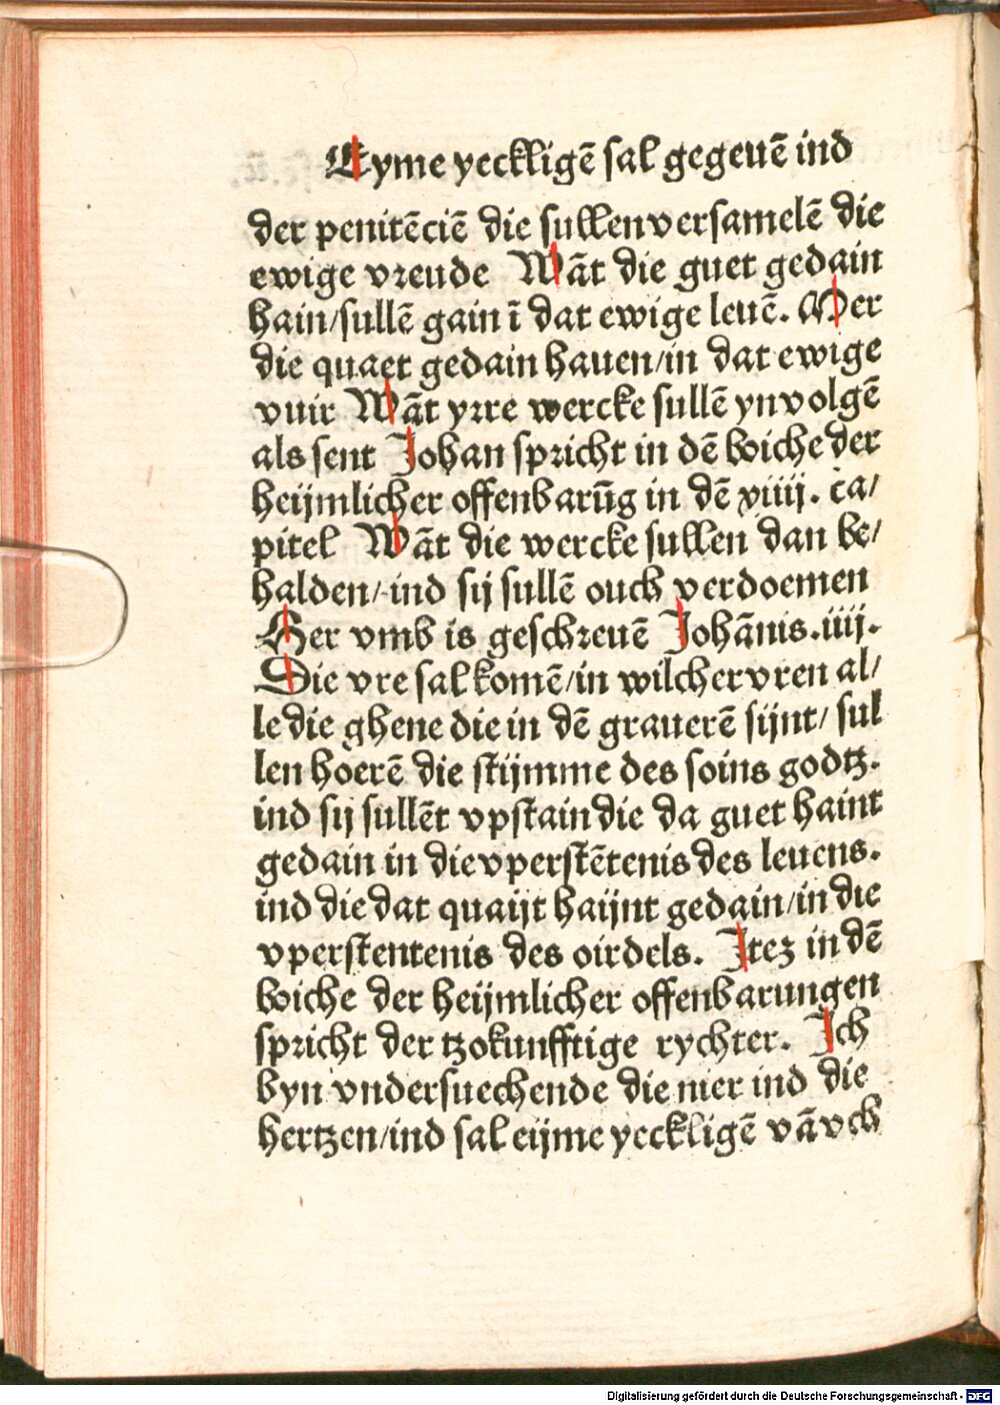 Eyme yeckligē sal gegeuē ind
der penitēciē die sullen versamelē die
ewige vreude Wāt die guet gedain
hain/sullē gain ī dat ewige leuē. Mer
die quaet gedain hauen/in dat ewige
vuir Wāt yrre wercke sullē yn volgē
als sent Johan spricht in dē boiche der
heijmlicher offenbarūg in dē xiiij. ca/
pitel Wāt die wercke sullen dan be/
halden/ind sij sullē ouch verdoemen
Her vmb is geschreuē Johānis.iiij.
Die vre sal komē/in wilcher vren al/
le die ghene die in dē grauerē sijnt/ sul
len hoerē die stijmme des soins godtz.
ind sij sullēt vpstain die da guet haint
gedain in die vperstētenis des leuens.
ind die dat quaijt haijnt gedain/in die
vperstentenis des oirdels. Itez in dē
boiche der heijmlicher offenbarungen
spricht der tzokunfftige rychter. Ich
byn vndersuechende die nier ind die
hertzen/ind sal eijme yeckligē vā vch
Digitalisierung gefördert durch die Deutsche Forschungsgemeinschaft - DFG